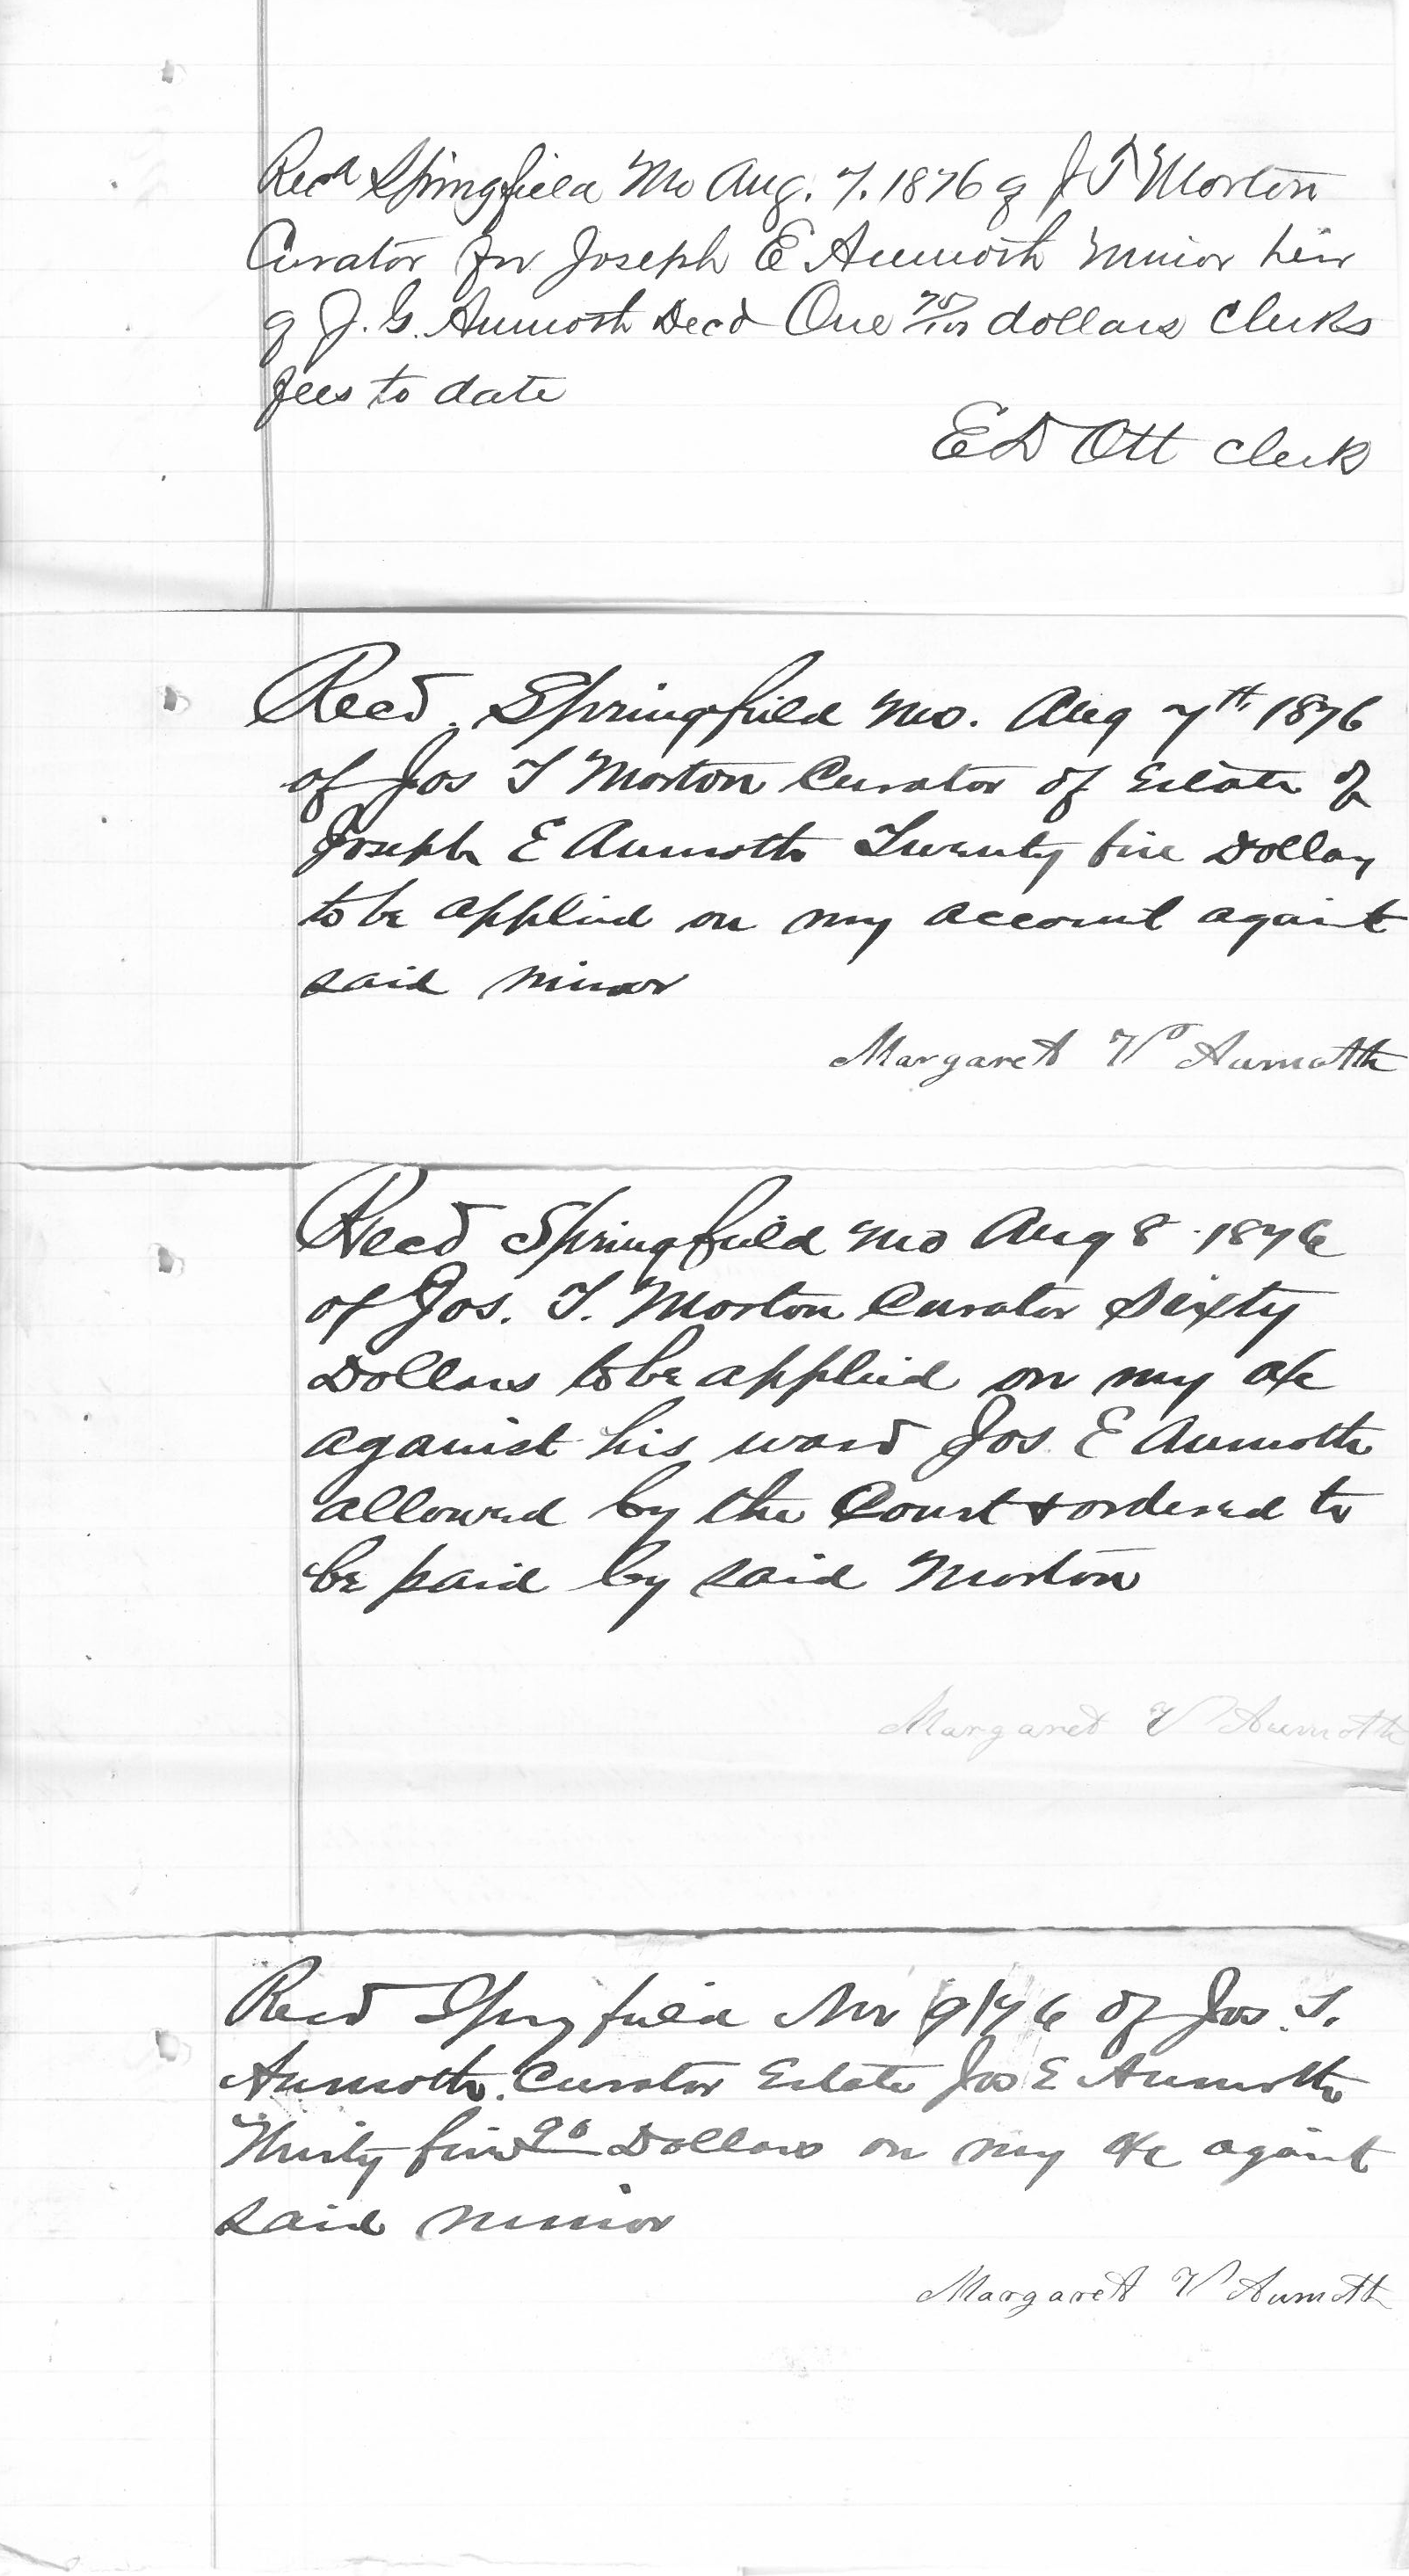 Recd Springfield Mo Aug. 7. 1876 of J T Morton
Curator for Joseph E Aumoth minor heir
of J. G. Aumoth Decd One 75/100 dollars Clerks
fees to date
E D Ott Clerk
Recd. Springfield Mo. Aug 7th 1876
of Jos T Morton Curator of Estate of
Joseph E Aumoth Twenty five Dollars
to be applied on my account against
said minor
Margaret V Aumoth
Recd Springfield Mo Aug 8 1876
of Jos. T. Morton Curator Sixty
Dollars to be applied on my a/c
against his ward Jos E Aumoth
allowed by the Court & ordered to
be paid by said Morton
Margaret V Aumoth
Recd Springfield Nov 9/76 of Jos. T.
Aumoth. Curator Estate Jos E Aumoth
Thirty five Dollars on my a/c against
said minor
Margaret V Aumoth